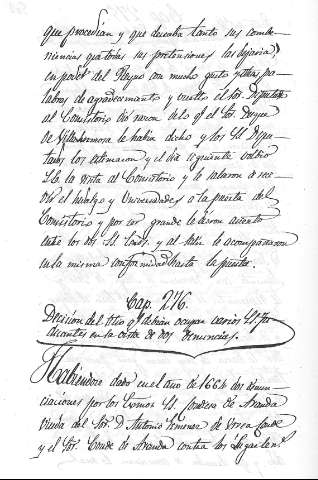 que procedian y que deseaba tanto sus combe-
niencias que todas sus pretensiones las dejaria
en poder del Reyno con mucho gusto y otras pa-
labras de agradecimiento y vuelto el Sor. Diputado
al Consistorio dió razon de lo qe. el Sor. Duque
de Villahermosa le habia dicho y los SS. Dipu-
tados los estimaron y el dia siguiente volbió
S.E. la visita al Consistorio y le salieron a reci-
bir el hidalgo y Universidades a la puerta del
Consistorio y por ser grande le dieron asiento
entre los dos SS. y al salir le acompañaron
en la misma conformidad hasta la puerta.
Cap. 276.
Decision del sitio qe. debian ocupar varios SS. Ju-
dicantes en la vista de dos denuncias.
Habiendose dado en el año de 1664 dos denun-
ciaciones por los Exmos. SS. Condesa de Aranda
viuda del Sor. D. Antonio Ximenez de Urrea Conde
y el Sor. Conde de Aranda contra los Lugarten.s